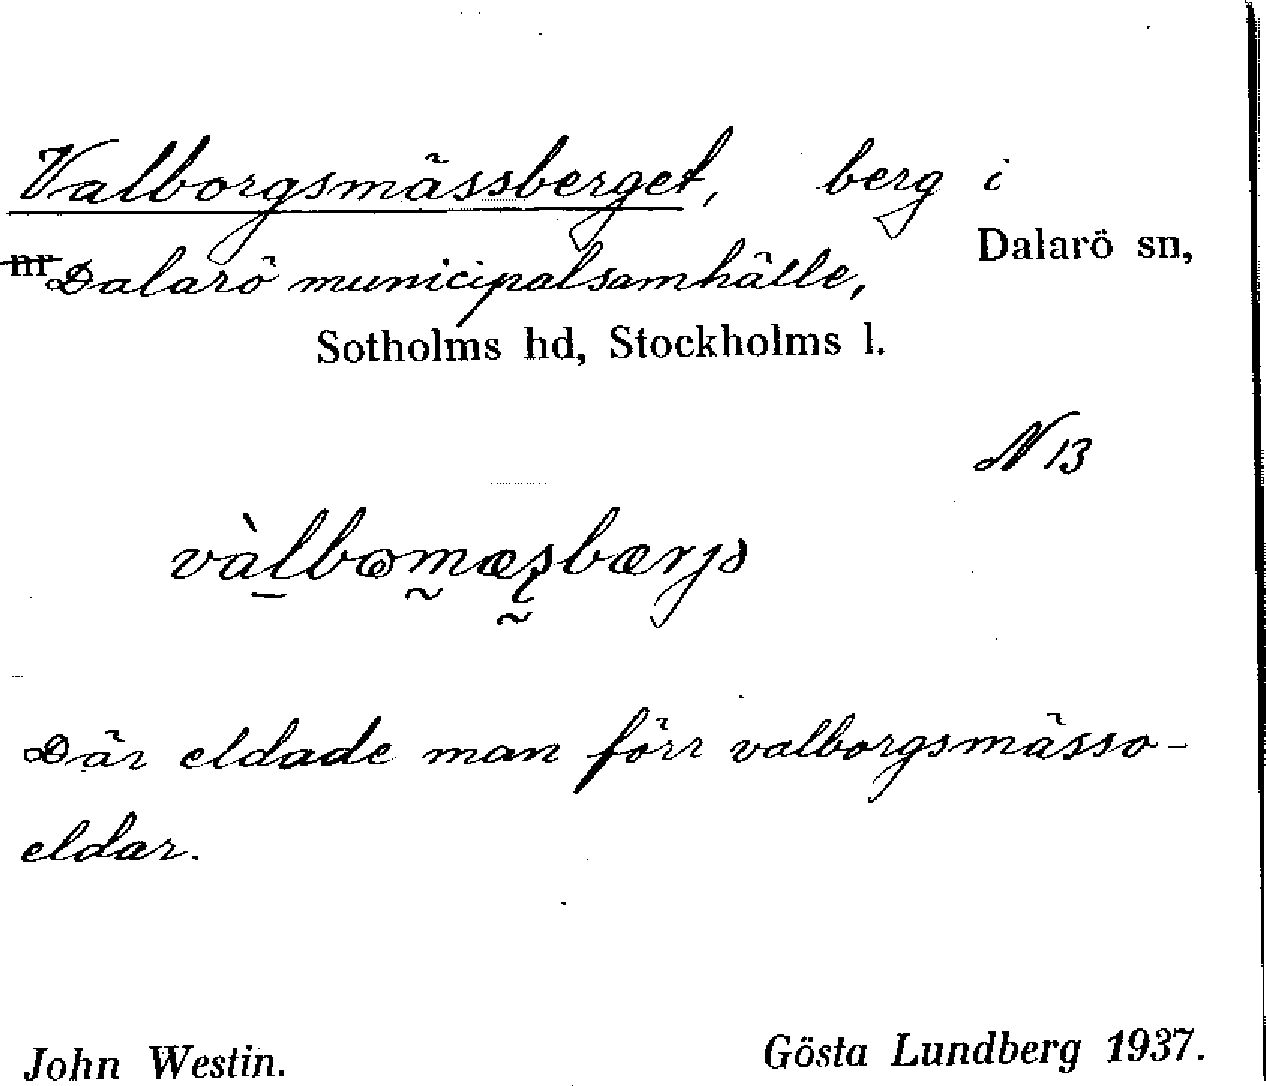 Valborgsmässberget, berg i
Dalarö sn,
nr Dalarö municipalsamhälle,
Sotholms hd, Stockholms l.
N 13
Där eldade man förr valborgsmässo-
eldar.
John Westin. Gösta Lundberg 1937.